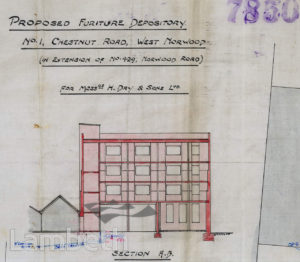 7850
PROPOSED FURITURE DEPOSITORY
NO. 1, CHESTNUT ROAD, WEST NORWOOD.
(IN EXTENSION OF NO. 429, NORWOOD ROAD)
FOR MESSRS H. DAY & SONS LTD.
Lambeth
SECTION A.B.